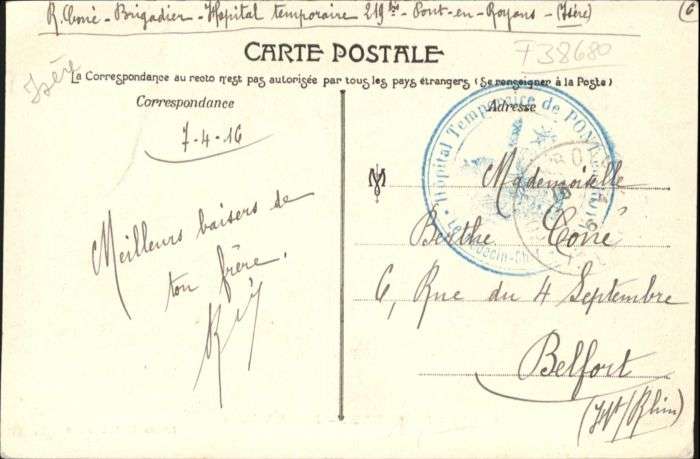 R. Coné - Brigadier - Hôpital temporaire 219 bis - Pont-en-Royans - (Isère)
6
CARTE POSTALE
F38680
Isère
La Correspondance au recto n'est pas autorisée par tous les pays étrangers (Se renseigner à la Poste)
Correspondance
Adresse
7-4-16
Meilleurs baisers de
ton frère.
Hôpital Temporaire de PONT
Le Médecin-Ch
Mademoiselle
Berthe Coné
6, Rue du 4 Septembre
Belfort
(Ht/Rhin)